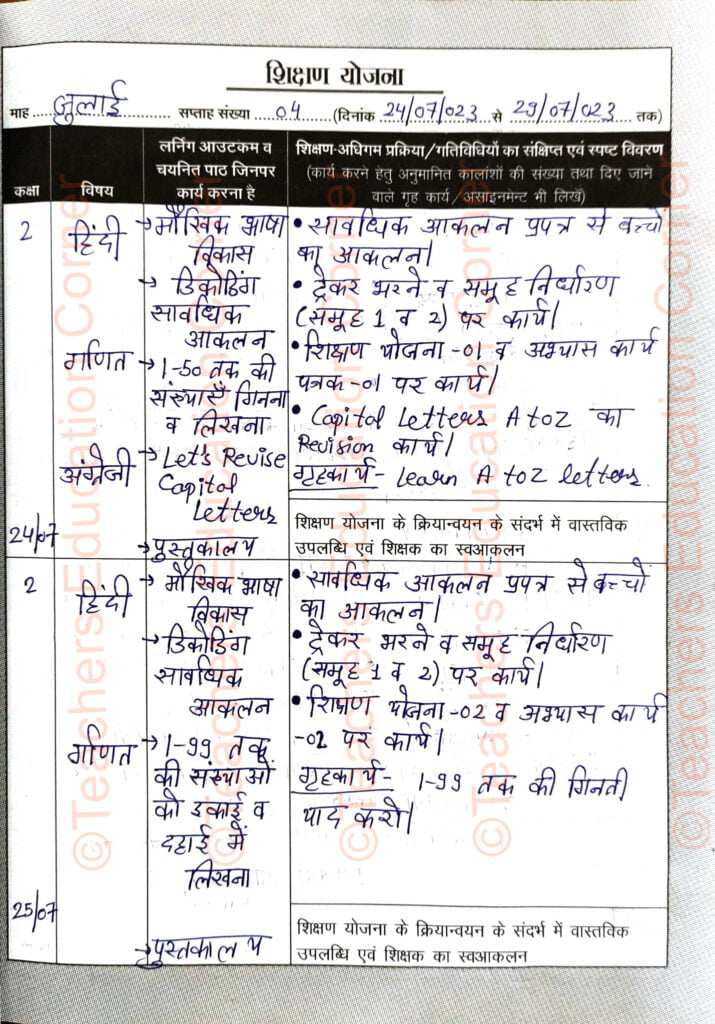 शिक्षण योजना
माह ....जुलाई.... सप्ताह संख्या ....04.... (दिनांक 24/07/023 से 29/07/023 तक)
कक्षा
विषय
लर्निंग आउटकम व
चयनित पाठ जिनपर
कार्य करना है
शिक्षण-अधिगम प्रक्रिया/गतिविधियों का संक्षिप्त एवं स्पष्ट विवरण
(कार्य करने हेतु अनुमानित कालांशों की संख्या तथा दिए जाने
वाले गृह कार्य/असाइनमेंट भी लिखें)
2
हिंदी
→ मौखिक भाषा
विकास
→ डिकोडिंग
सावधिक
आकलन
गणित
→ 1-50 तक की
संख्याएँ गिनना
व लिखना
अंग्रेजी
→ Let's Revise
Capital
Letters
24/07
→ पुस्तकालय
• सावधिक आकलन प्रपत्र से बच्चों
का आकलन।
• ट्रेकर भरने व समूह निर्धारण
(समूह 1 व 2) पर कार्य।
• शिक्षण योजना -01 व अभ्यास कार्य
पत्रक -01 पर कार्य।
• Capital Letters A to Z का
Revision कार्य।
गृहकार्य - Learn A to Z letters.
शिक्षण योजना के क्रियान्वयन के संदर्भ में वास्तविक
उपलब्धि एवं शिक्षक का स्वआकलन
2
हिंदी
→ मौखिक भाषा
विकास
→ डिकोडिंग
सावधिक
आकलन
गणित
→ 1-99 तक
की संख्याओं
को इकाई व
दहाई में
लिखना
25/07
→ पुस्तकालय
• सावधिक आकलन प्रपत्र से बच्चों
का आकलन।
• ट्रेकर भरने व समूह निर्धारण
(समूह 1 व 2) पर कार्य।
• शिक्षण योजना -02 व अभ्यास कार्य
-02 पर कार्य।
गृहकार्य - 1-99 तक की गिनती
याद करो।
शिक्षण योजना के क्रियान्वयन के संदर्भ में वास्तविक
उपलब्धि एवं शिक्षक का स्वआकलन
©Teachers Education Corner
©Teachers Education Corner
©Teachers Education Corner
©Teachers Education Corner